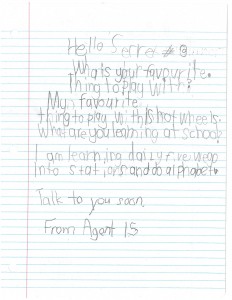 Hello Secret # 9
Whats your favourite.
thing to play with?
My favourite.
thing to play with is hot wheels.
What are you learning at school?
I am learning daily five we go
into stations and do alphabet.
Talk to you soon.
From Agent 15